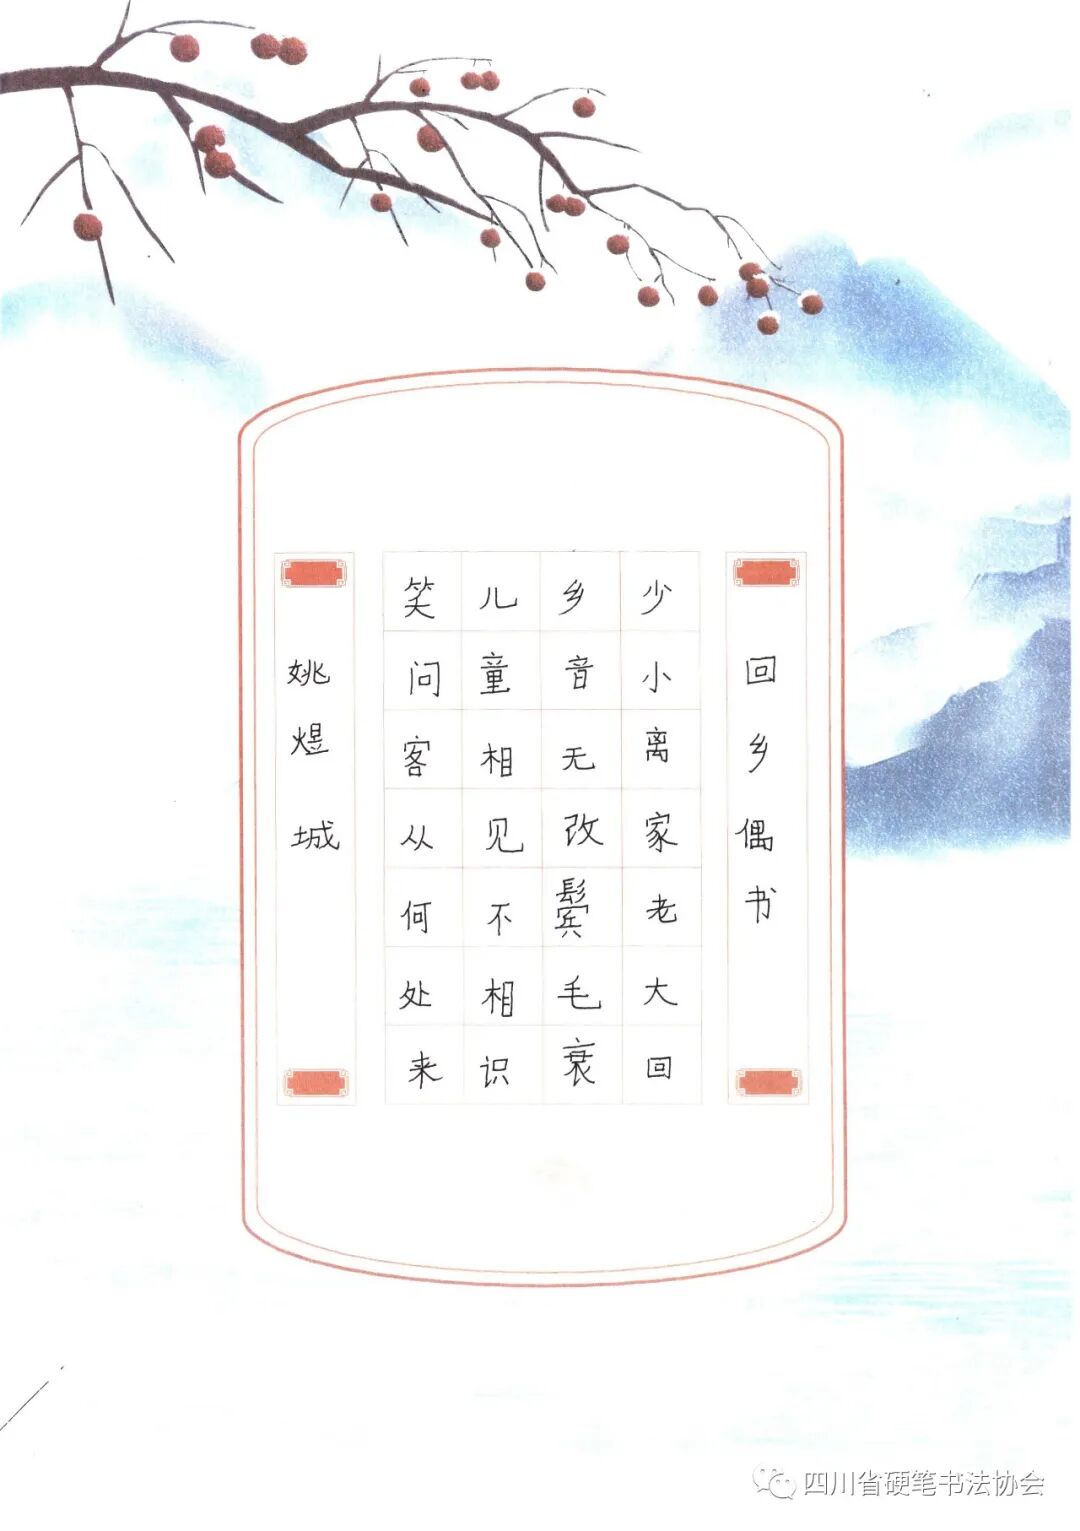 回乡偶书
少小离家老大回
乡音无改鬓毛衰
儿童相见不相识
笑问客从何处来
姚煜城
四川省硬笔书法协会